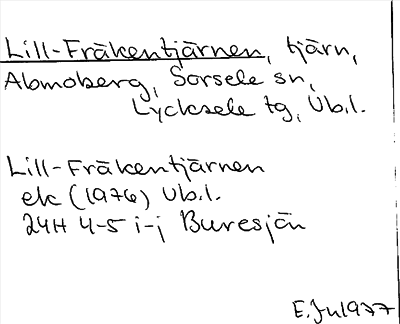 Lill-Fräkentjärnen, tjärn,
Abmoberg, Sorsele sn,
Lycksele tg, Vb.l.
Lill-Fräkentjärnen
ek (1976) Vb.l.
24H 4-5 i-j Buresjön
E. Ju 1977